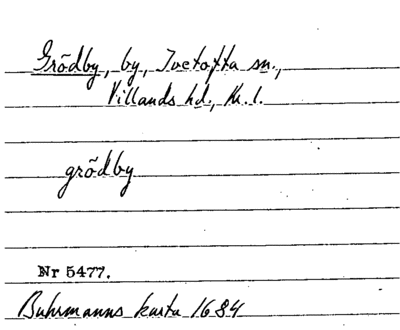 Grödby, by, Ivetofta sn.,
Villands hd, Kr. l.
grödby
Nr 5477.
Buhrmanns karta 1684